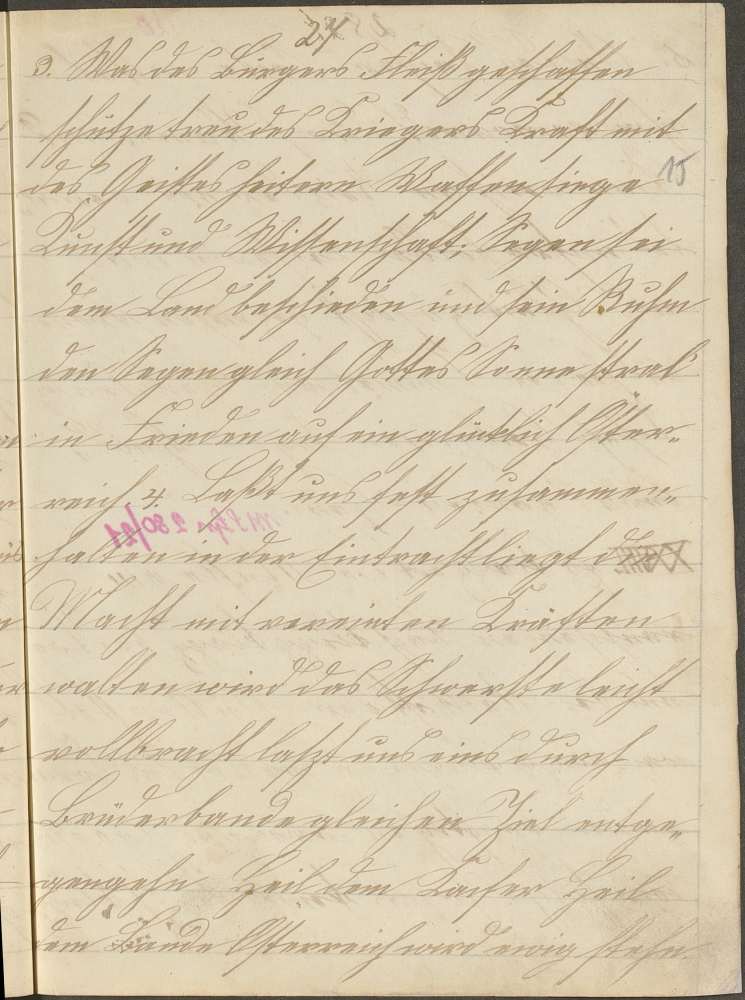 24
3. Was des Bürgers Fleiß geschaffen
schütze treu des Kriegers Kraft mit
des Geistes heitern Waffen siege
15
Kunst und Wissenschaft; Segen sei
dem Land beschieden und sein Ruhm
den Segen gleich Gottes Sonne stral
in Frieden auf ein glücklich Öster„
reich 4. Laßt uns fest zusammen„
halten in der Eintracht liegt d
Macht mit vereinten Kräften
walten wird das Schwerste leicht
vollbracht laszt uns eins durch
Brüderbande gleichen Ziel entge„
gengehn Heil dem Kaiser Heil
dem Lande Österreich wird ewig stehn.